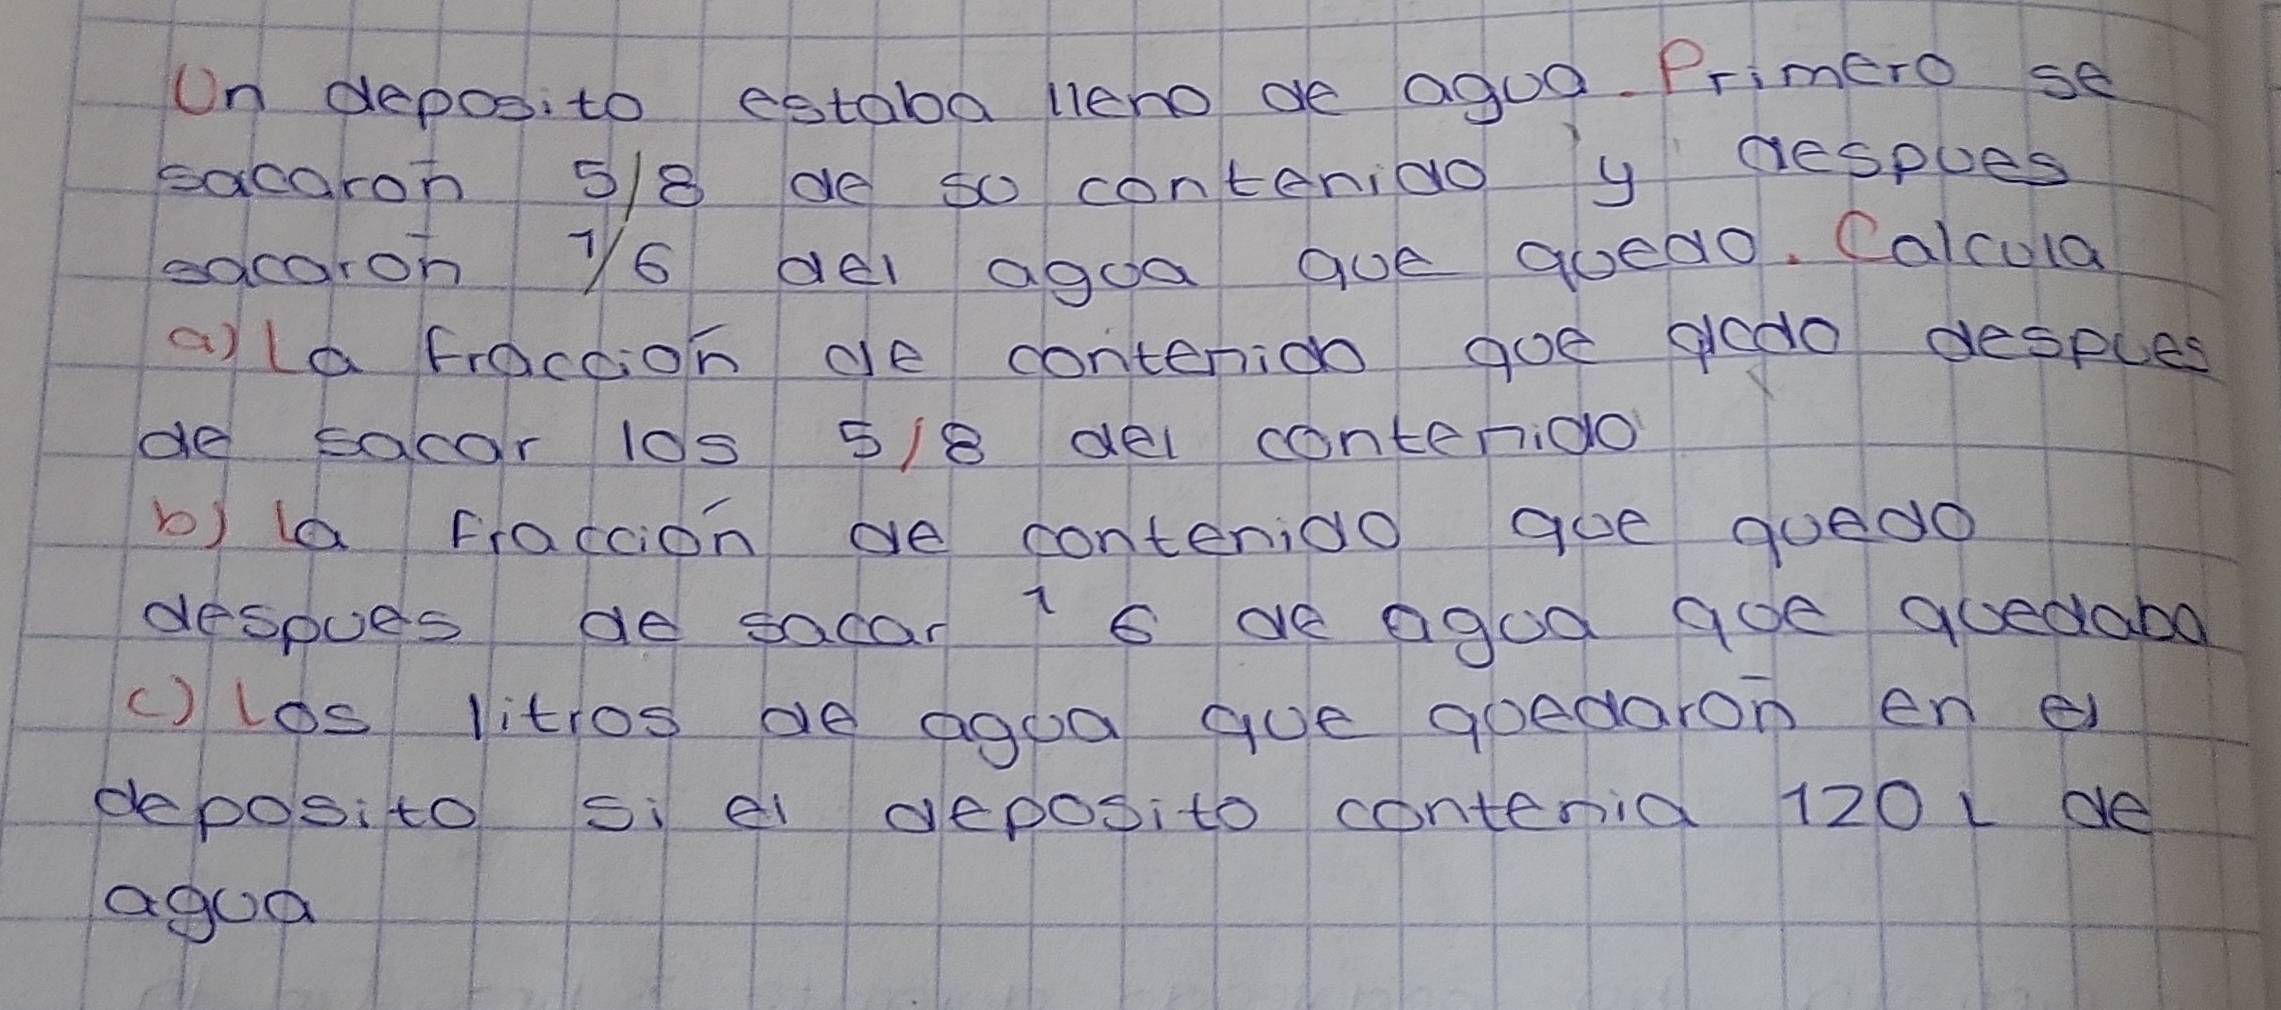 Un deposito estaba lleno de agua. Primero se
sacarón 5/8 de so contenido y despues
sacarón 1/6 del agua que quedo. Calcula
a) La fracción de contenido que qudo despues
de sacar los 5/8 del contenido
b) la Fracción de contenido que quedo
despues de sacar 1 6 de agua que quedaba
c) Los litros de agua que quedarón en el
deposito si el deposito contenia 120 L de
agua